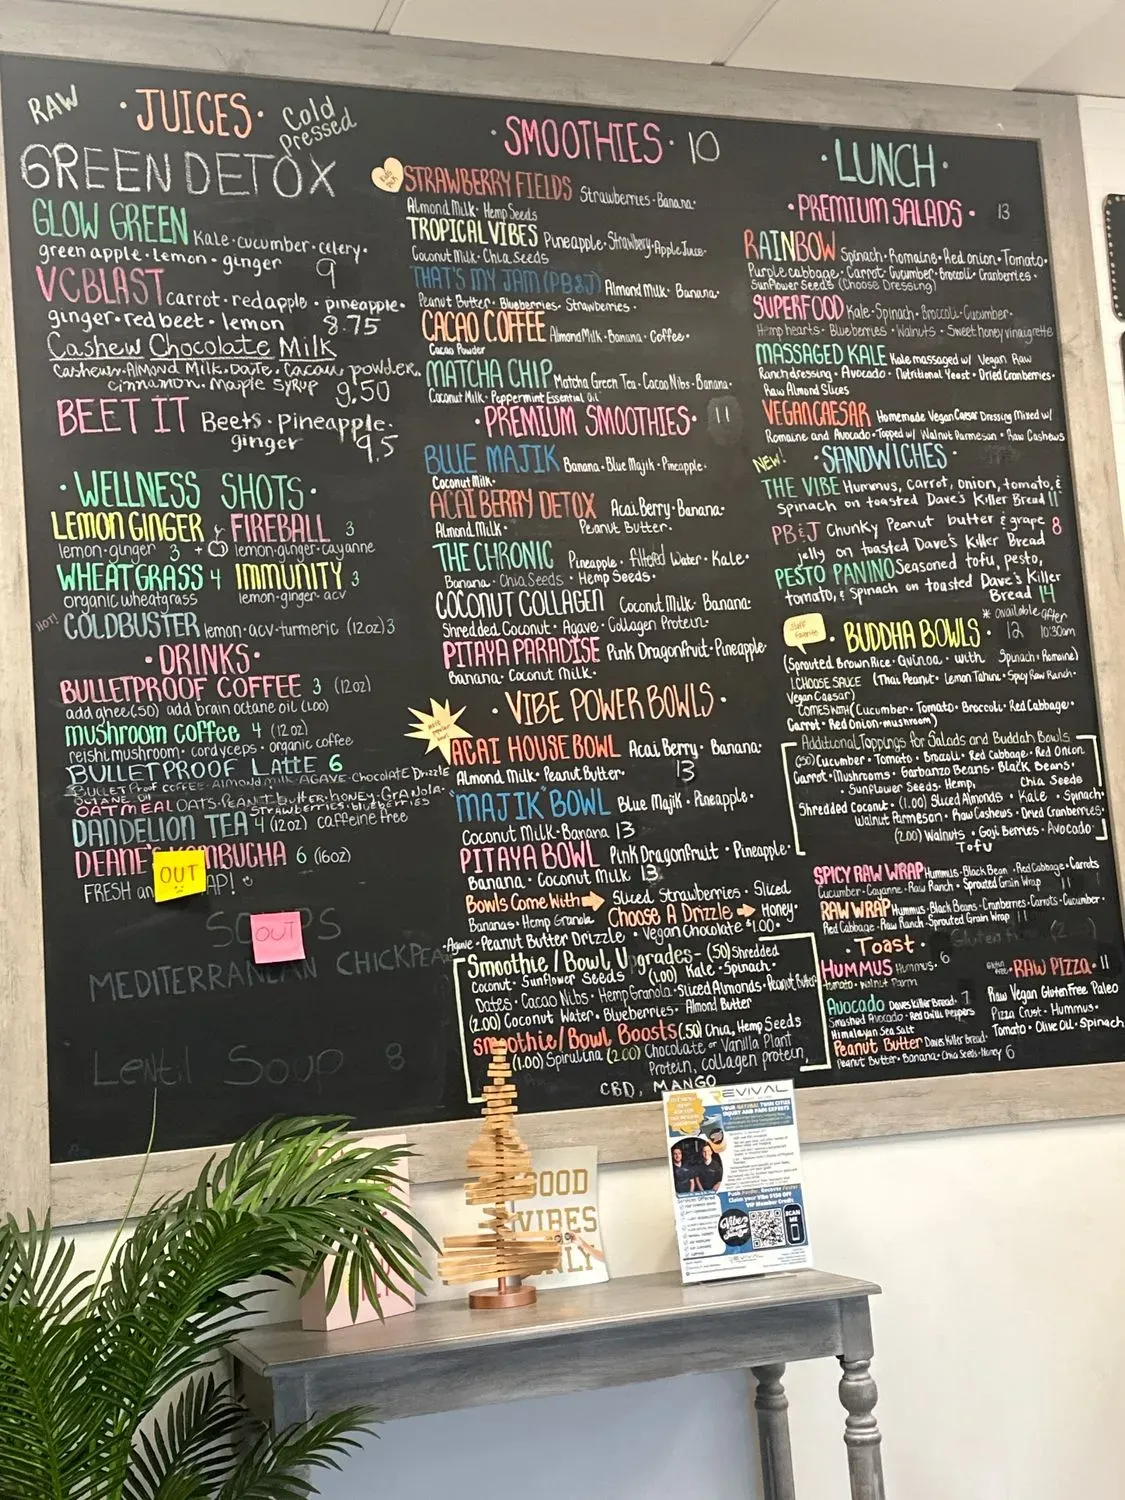 RAW
· JUICES ·
Cold
Pressed
GREEN DETOX
GLOW GREEN Kale · cucumber · celery ·
green apple · lemon · ginger 9
VC BLAST carrot · red apple · pineapple ·
ginger · red beet · lemon 8.75
Cashew Chocolate Milk
Cashews · Almond Milk · Date · Cacau powder,
cinnamon. Maple syrup 9.50
BEET IT Beets · pineapple ·
ginger 9.5
· WELLNESS SHOTS ·
LEMON GINGER FIREBALL 3
lemon · ginger 3 + lemon · ginger · cayanne
WHEATGRASS 4 IMMUNITY 3
organic wheatgrass lemon · ginger · acv
HOT! COLDBUSTER lemon · acv · turmeric (12oz) 3
· DRINKS ·
BULLETPROOF COFFEE 3 (12oz)
add ghee (.50) add brain octane oil (1.00)
mushroom coffee 4 (12oz)
reishi mushroom · cordyceps · organic coffee
BULLETPROOF LATTE 6
BULLETProof COFFEE · Almond milk · AGAVE · Chocolate Drizzle
OCTANE OIL
OATMEAL OATS · PEANUT butter · HONEY · GRANOLA ·
STRAWBERRIES · blueberries
DANDELION TEA 4 (12oz) caffeine free
DEANE'S KOMBUCHA 6 (16oz)
OUT
FRESH an AP!
SOUPS
OUT
MEDITERRANEAN CHICKPEA
Lentil Soup 8
SMOOTHIES · 10
STRAWBERRY FIELDS Strawberries · Banana ·
Almond Milk · Hemp Seeds
TROPICAL VIBES Pineapple · Strawberry · Apple Juice ·
Coconut Milk · Chia Seeds
THAT'S MY JAM (PB&J) Almond Milk · Banana ·
Peanut Butter · Blueberries · Strawberries ·
CACAO COFFEE Almond Milk · Banana · Coffee ·
Cacao Powder
MATCHA CHIP Matcha Green Tea · Cacao Nibs · Banana ·
Coconut Milk · Peppermint Essential Oil
· PREMIUM SMOOTHIES · 11
BLUE MAJIK Banana · Blue Majik · Pineapple ·
Coconut Milk ·
ACAI BERRY DETOX Acai Berry · Banana ·
Almond Milk · Peanut Butter ·
THE CHRONIC Pineapple · filtered Water · Kale ·
Banana · Chia Seeds · Hemp Seeds ·
COCONUT COLLAGEN Coconut Milk · Banana ·
Shredded Coconut · Agave · Collagen Protein ·
PITAYA PARADISE Pink Dragonfruit · Pineapple ·
Banana · Coconut Milk ·
· VIBE POWER BOWLS ·
ACAI HOUSE BOWL Acai Berry · Banana ·
Almond Milk · Peanut Butter · 13
"MAJIK" BOWL Blue Majik · Pineapple ·
Coconut Milk · Banana 13
PITAYA BOWL Pink Dragonfruit · Pineapple ·
Banana · Coconut Milk 13
Bowls Come With Sliced Strawberries · Sliced
Bananas · Hemp Granola · Choose A Drizzle Honey ·
Agave · Peanut Butter Drizzle · Vegan Chocolate $1.00 ·
Smoothie / Bowl U grades - (.50) Shredded
Coconut · Sunflower Seeds (1.00) Kale · Spinach ·
Dates · Cacao Nibs · Hemp Granola · Sliced Almonds · Peanut Butter
(2.00) Coconut Water · Blueberries · Almond Butter
smoothie/Bowl Boosts (.50) Chia, Hemp Seeds
(1.00) Spirulina (2.00) Chocolate or Vanilla Plant
Protein, collagen protein,
CBD, MANGO
· LUNCH ·
· PREMIUM SALADS · 13
RAINBOW Spinach · Romaine · Red onion · Tomato ·
Purple cabbage · Carrot · Cucumber · Broccoli · Cranberries ·
Sunflower Seeds (Choose Dressing)
SUPERFOOD Kale · Spinach · Broccoli · Cucumber ·
Hemp hearts · Blueberries · Walnuts · Sweet honey vinaigrette
MASSAGED KALE Kale massaged w/ Vegan Raw
Ranch dressing · Avocado · Nutritional Yeast · Dried Cranberries ·
Raw Almond Slices
VEGAN CAESAR Homemade Vegan Caesar Dressing Mixed w/
Romaine and Avocado · Topped w/ Walnut Parmesan · Raw Cashews
NEW! · SANDWICHES ·
THE VIBE Hummus, carrot, onion, tomato, &
spinach on toasted Dave's Killer Bread 11
PB&J Chunky Peanut butter & grape 8
jelly on toasted Dave's Killer Bread
PESTO PANINO Seasoned tofu, pesto,
tomato, & spinach on toasted Dave's Killer
Bread 14
* available after
10:30am
staff favorite
· BUDDHA BOWLS · 12
(Sprouted Brown Rice · Quinoa · with Spinach · Romaine)
1.CHOOSE SAUCE (Thai Peanut · Lemon Tahini · Spicy Raw Ranch ·
Vegan Caesar)
COMES WITH (Cucumber · Tomato · Broccoli · Red Cabbage ·
Carrot · Red Onion · mushroom)
Additional Toppings for Salads and Buddah Bowls
(.50) Cucumber · Tomato · Brocoli · Red Cabbage · Red Onion
Carrot · Mushrooms · Garbanzo Beans · Black Beans ·
· Sunflower Seeds · Hemp, Chia Seeds
Shredded Coconut · (1.00) Sliced Almonds · Kale · Spinach ·
Walnut Parmesan · Raw Cashews · Dried Cranberries ·
(2.00) Walnuts · Goji Berries · Avocado ·
Tofu
SPICY RAW WRAP Hummus · Black Bean · Red Cabbage · Carrots
Cucumber · Cayanne · Raw Ranch · Sprouted Grain Wrap 11
RAW WRAP Hummus · Black Beans · Cranberries · Carrots · Cucumber ·
Red Cabbage · Raw Ranch · Sprouted Grain Wrap 11
· Toast ·
HUMMUS Hummus · 6
tomato · walnut Parm
Avocado Daves Killer Bread · 7
Smashed Avocado · Red Chilli Peppers
Himalayan Sea Salt
Peanut Butter Daves Killer Bread ·
Peanut Butter · Banana · Chia Seeds · Honey 6
RAW PIZZA · 11
Raw Vegan Gluten Free Paleo
Pizza Crust · Hummus ·
Tomato · Olive Oil · Spinach
GOOD
VIBES
ONLY
REVIVAL
YOUR NATURAL TWIN CITIES
INJURY AND PAIN EXPERTS
Claim your Vibe $150 OFF
VIP Member Credit
SCAN
ME
REVIVAL